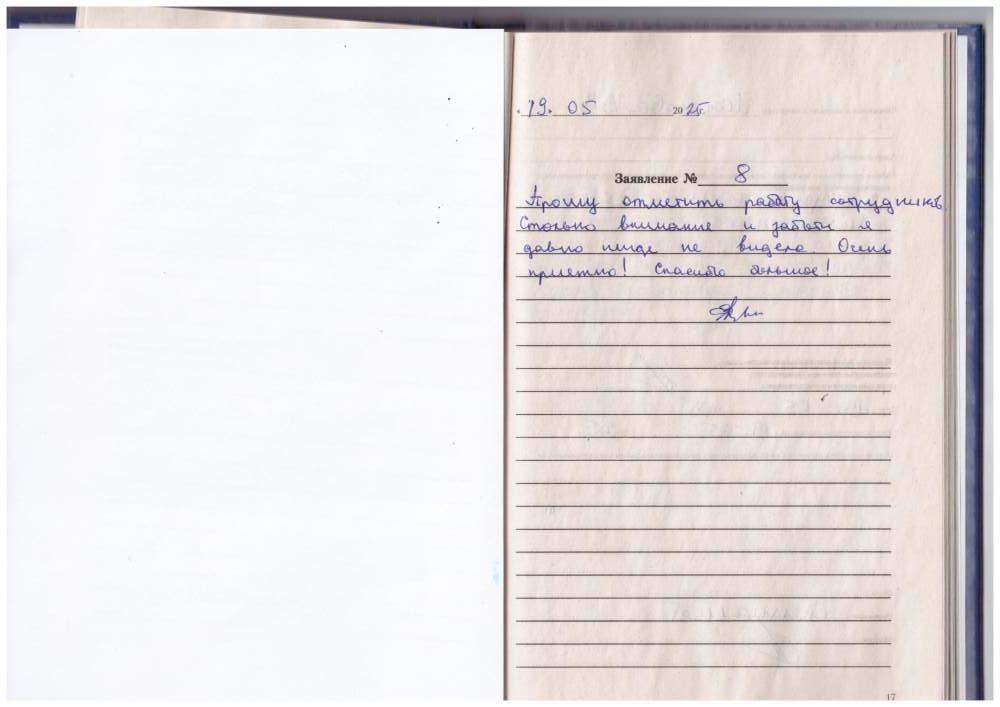 « 19 » 05 2025 г.
Заявление № 8
Прошу отметить работу сотрудников.
Столько внимание и заботы я
давно нигде не видела Очень
приятно! Спасибо большое!
17